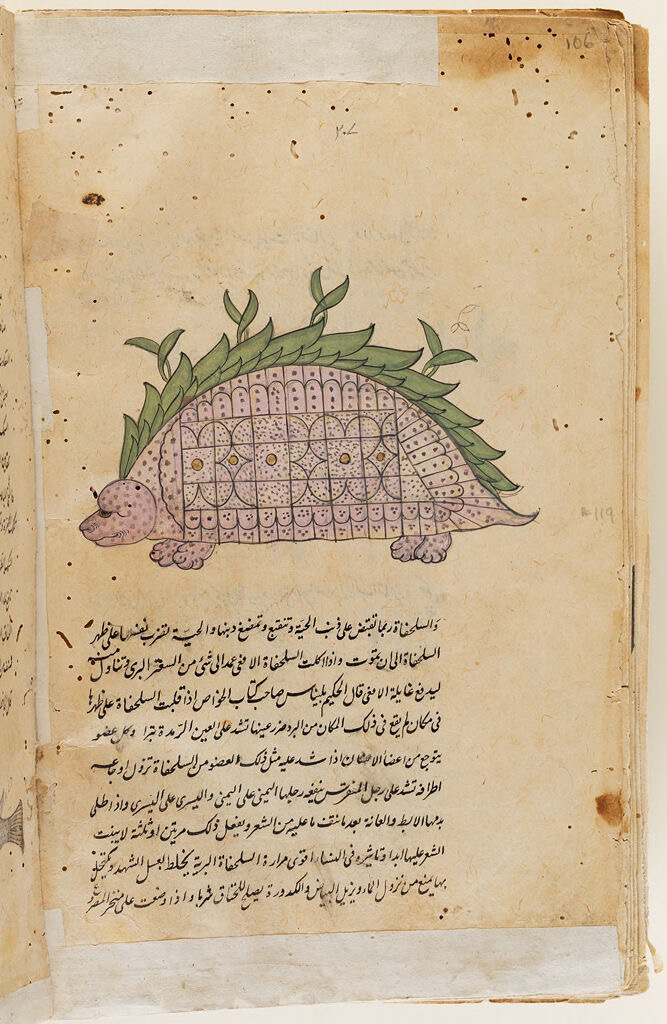 106
٢٠٧
119
والسلحفاة ربما تقبض على ذنب الحية وتمضغ ذنبها والحية تضرب بنفسها على ظهر
السلحفاة الى ان يموت واذا اكلت السلحفاة الافعى عمدالى شئ من السعتر البرى وتناول منه
ليدفع غايلة الافعى قال الحكيم بليناس صاحب كتاب الخواص اذا قلبت السلحفاة على ظهرها
فى مكان لم يقع فى ذلك المكان من البرد ضرر عينها تشد على العين الرمدة تبرا وكل عضو
يتوجع من اعضا الانسان اذا شد عليه مثل ذلك العضو من السلحفاة تزول اوجاعه
اطرافه تشد على رجل المنقرس ينفعه رجلها اليمنى على اليمنى واليسرى على اليسرى واذا طلى
بدمها الابط والعانة بعد ما نتف ما عليه من الشعر ويفعل ذلك مرتين او ثلثة لا ينبت
الشعر عليها ابدا وتاثيره فى النساء اقوى مرارة السلحفاة البرية يخلط بعسل الشهد ويكتحل
بها يمنع من نزول الماء ويزيل البياض والكدورة يصلح للخناق شربا واذا وضعت على منخر المصروع